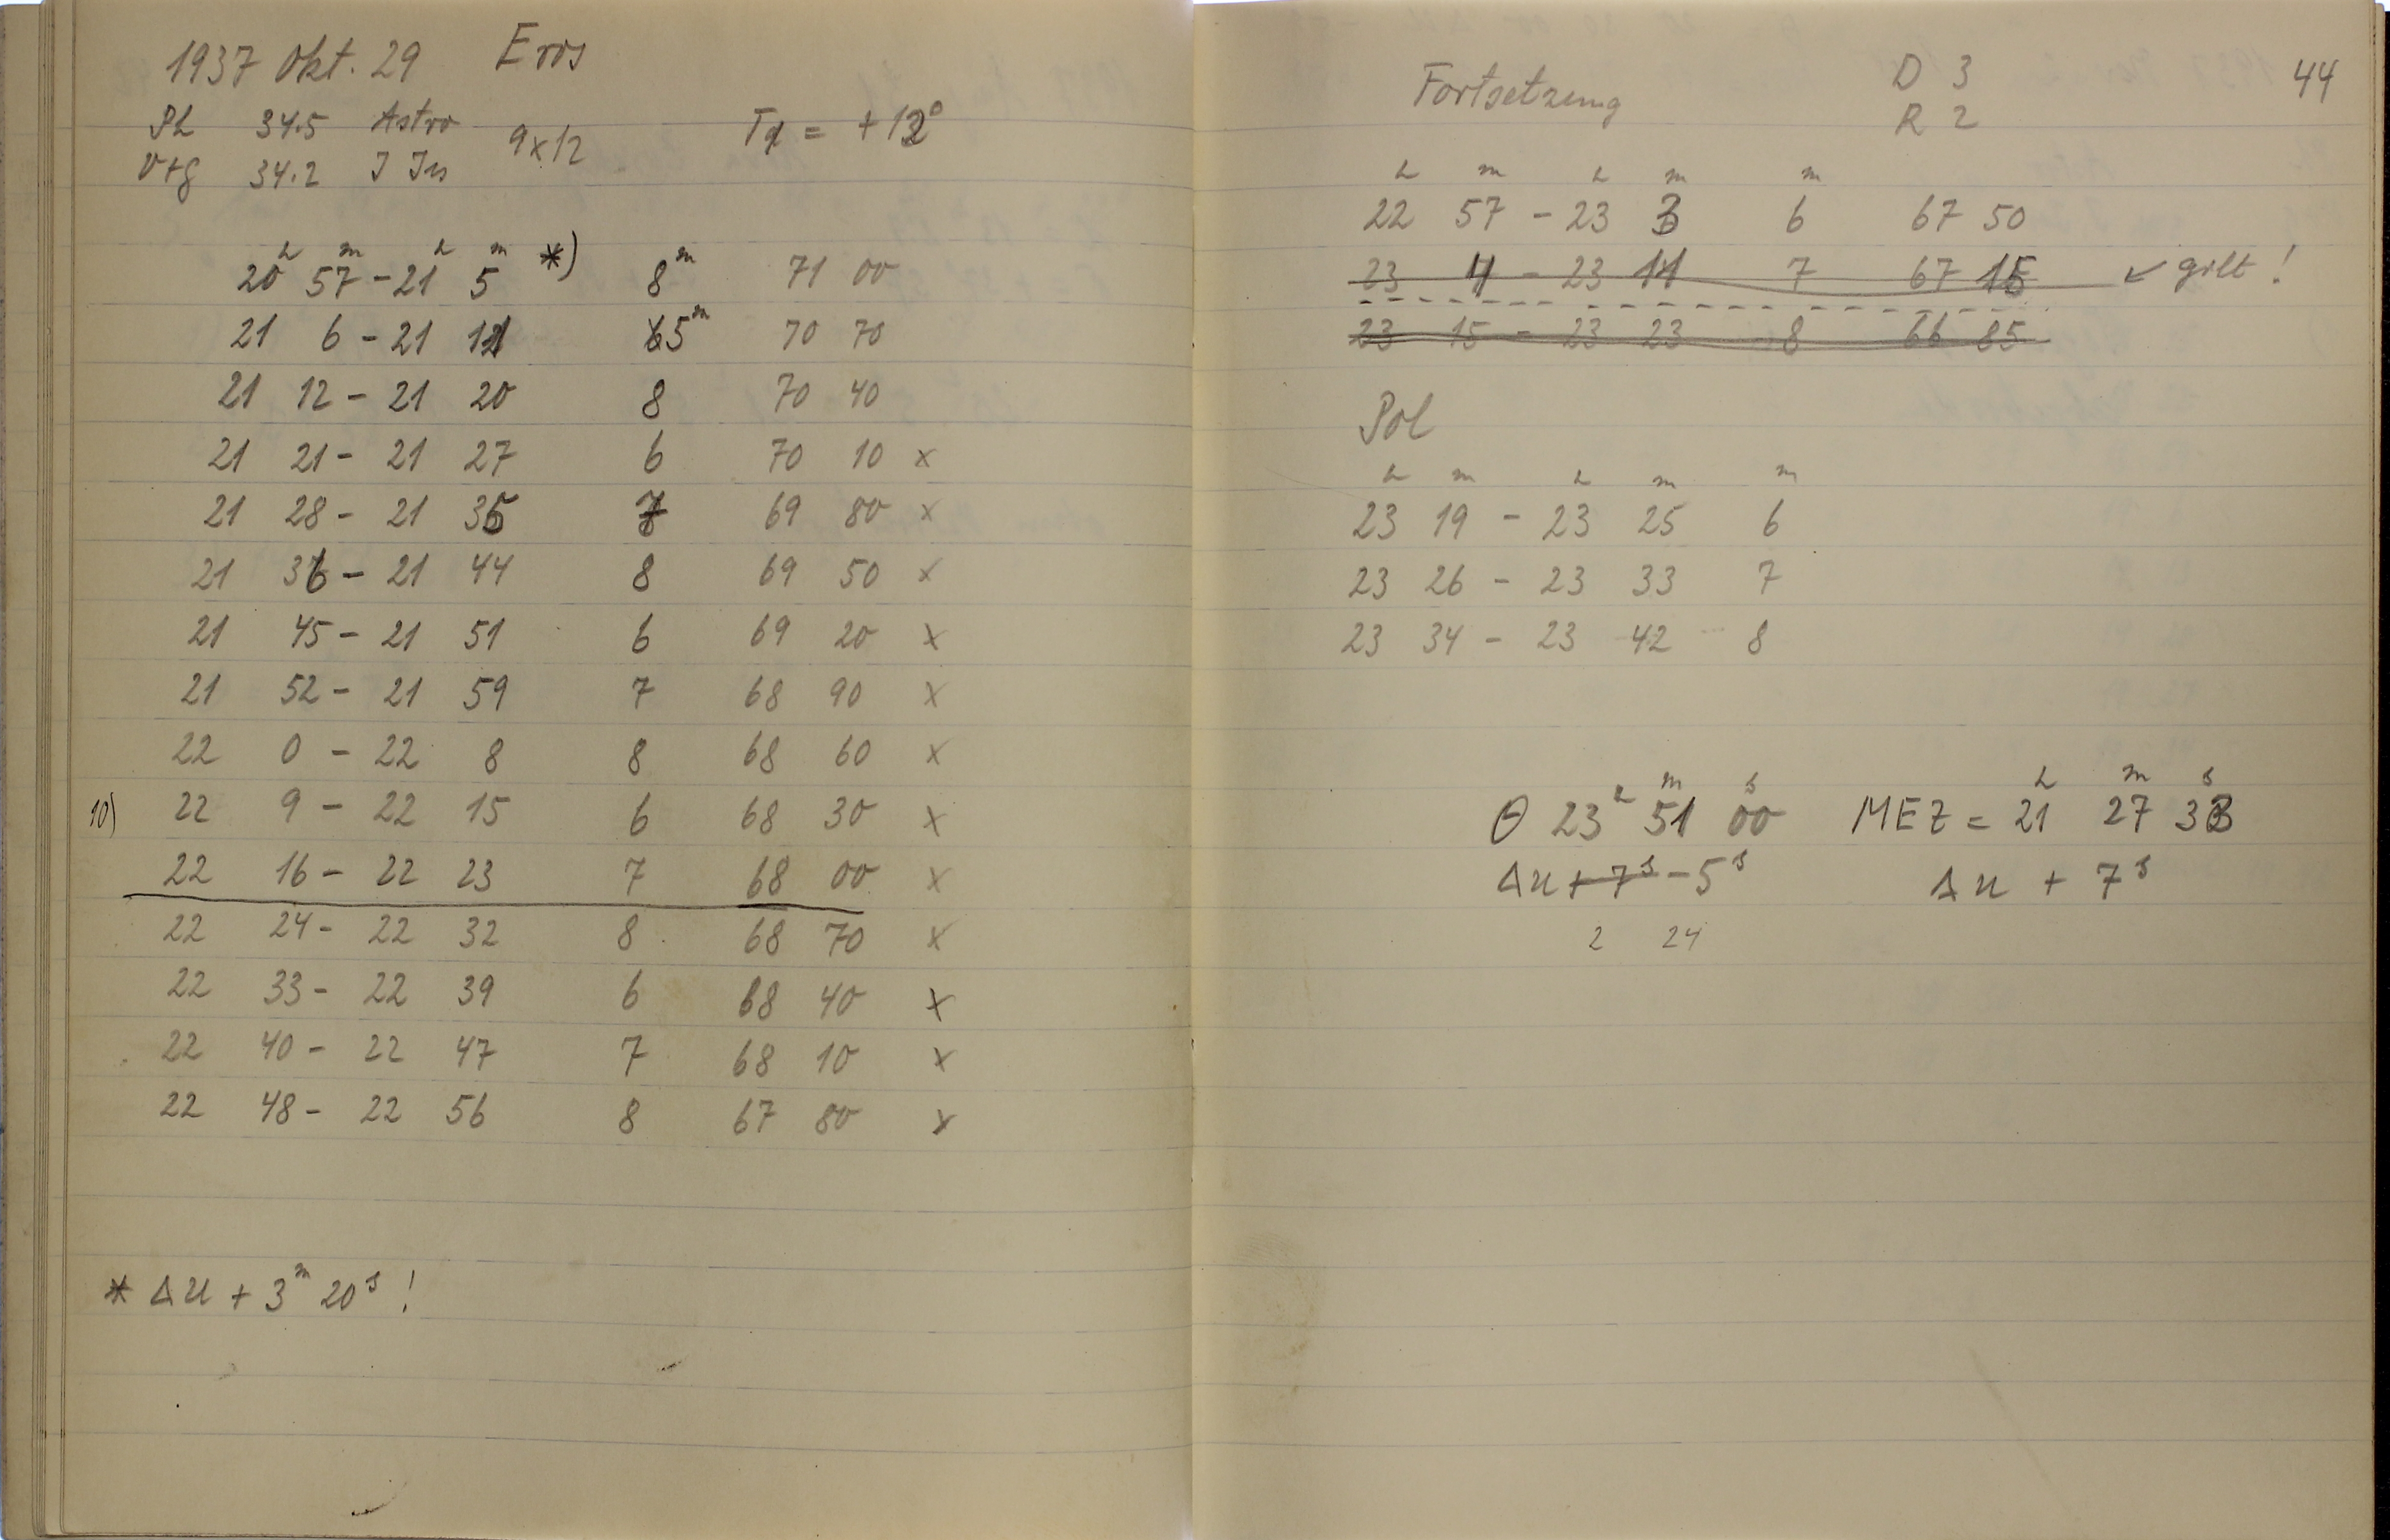 1937 Okt. 29 Eros
Pl 34.5 Astro 9x12 Tx = +12°
V+g 34.2 J Jus
20h 57m - 21h 5m *) 8m 71 00
21 6 - 21 11 5m 70 70
21 12 - 21 20 8 70 40
21 21 - 21 27 6 70 10 x
21 28 - 21 35 7 69 80 x
21 36 - 21 44 8 69 50 x
21 45 - 21 51 6 69 20 x
21 52 - 21 59 7 68 90 x
22 0 - 22 8 8 68 60 x
10) 22 9 - 22 15 6 68 30 x
22 16 - 22 23 7 68 00 x
22 24 - 22 32 8 68 70 x
22 33 - 22 39 6 68 40 x
22 40 - 22 47 7 68 10 x
22 48 - 22 56 8 67 80 x
* Δu + 3m 20s !
44
Fortsetzung D 3
R 2
h m h m m
22 57 - 23 3 6 67 50
23 4 - 23 11 7 67 15 ↙ gilt !
23 15 - 23 23 8 66 85
Pol
h m h m m
23 19 - 23 25 6
23 26 - 23 33 7
23 34 - 23 42 8
Θ 23h 51m 00s MEZ = 21h 27m 33s
Δu + 7s - 5s Δu + 7s
2 24